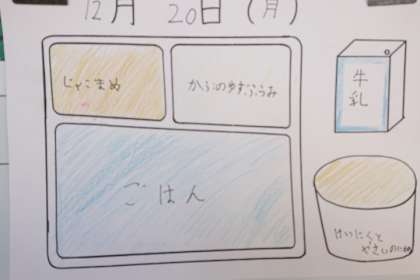 12月 20日 (月)
じゃこまめ
かぶのゆずふうみ
牛
乳
ごはん
けいにくと
やさいのにもの